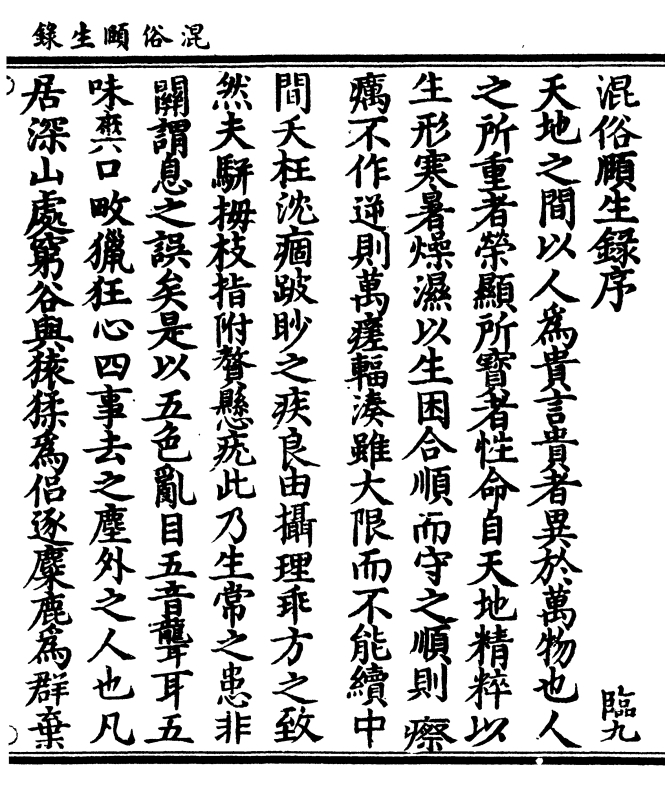 混俗頤生錄
混俗頤生錄序
臨九
天地之間以人爲貴言貴者異於萬物也人
之所重者榮顯所寳者性命自天地精粹以
生形寒暑燥濕以生困合順而守之順則瘵
癘不作逆則萬瘥輻湊雖大限而不能續中
間夭枉沈痼跛眇之疾良由攝理乖方之致
然夫駢拇枝指附贅懸疣此乃生常之患非
關謂息之誤矣是以五色亂目五音聾耳五
味爽口畋獵狂心四事去之塵外之人也凡
居深山處窮谷與猿猱爲侣逐麋鹿爲群棄